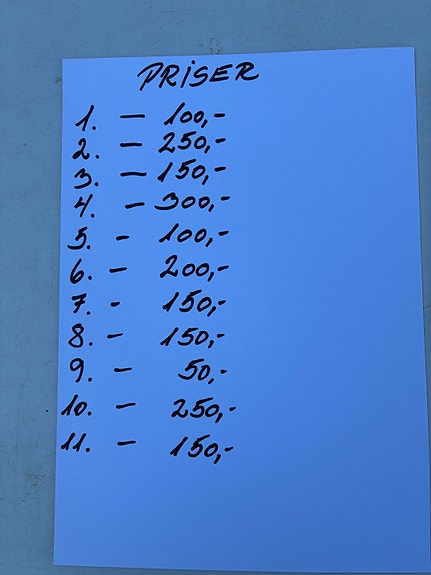 PRISER
1. - 100,-
2. - 250,-
3. - 150,-
4. - 300,-
5. - 100,-
6. - 200,-
7. - 150,-
8. - 150,-
9. - 50,-
10. - 250,-
11. - 150,-